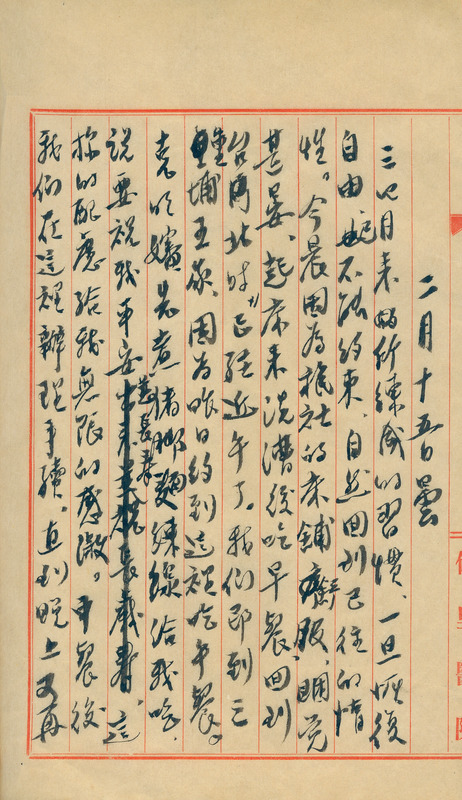 二月十五日 曇
三四月來的所練成的習慣、一旦恢復
自由就不能約束、自然回到已往的惰
性。今晨因為旅社的床鋪舒服、睏覺
甚晏、起床來洗漕後吃早餐、回到
台南北時、已經近午了。我們即到三
埔王家、因為昨日約到這裡吃午餐。
嬸先煮豬腳麵線給我吃、
說要祝我平安長壽、這
樣的配慮給我無限的感激。中餐後
我們在這裡辦理手續。直到晚上又再